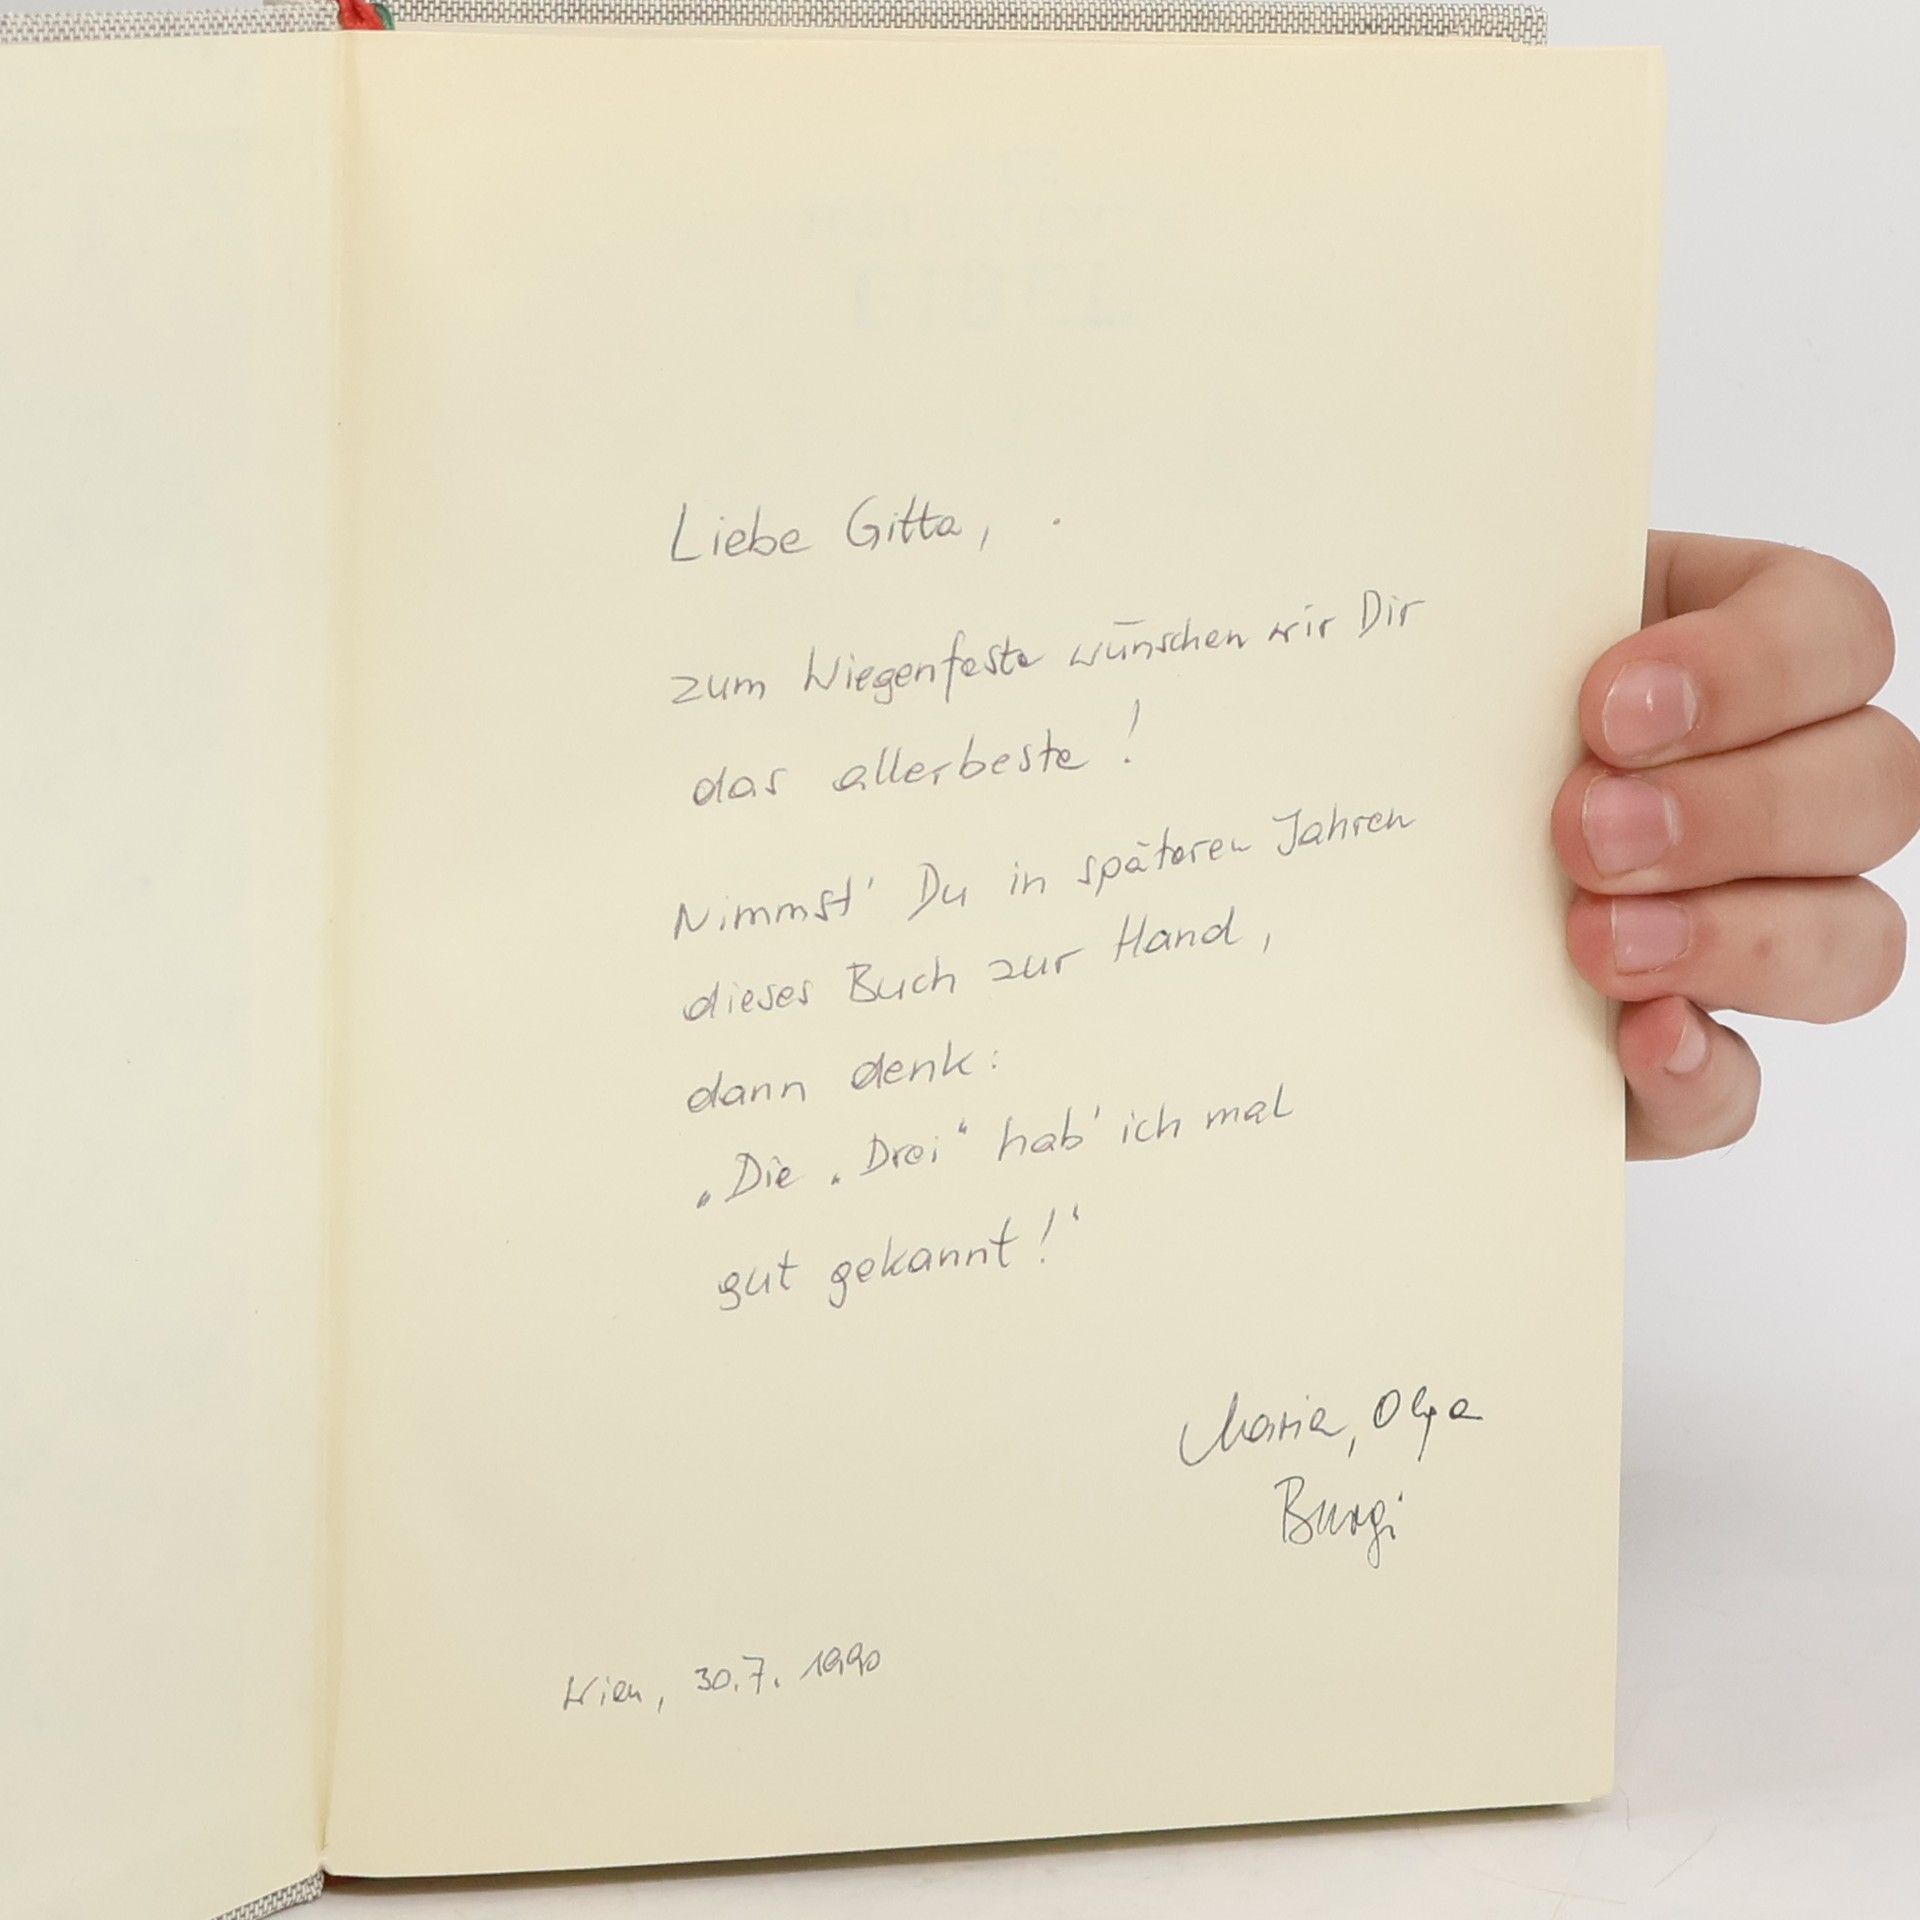 Liebe Gitta,
zum Wiegenfeste wünschen wir Dir
das allerbeste!
Nimmst' Du in späteren Jahren
dieses Buch zur Hand,
dann denk:
„Die „Drei“ hab' ich mal
gut gekannt!“
Maria, Olga
Burgi
Wien, 30.7. 1990